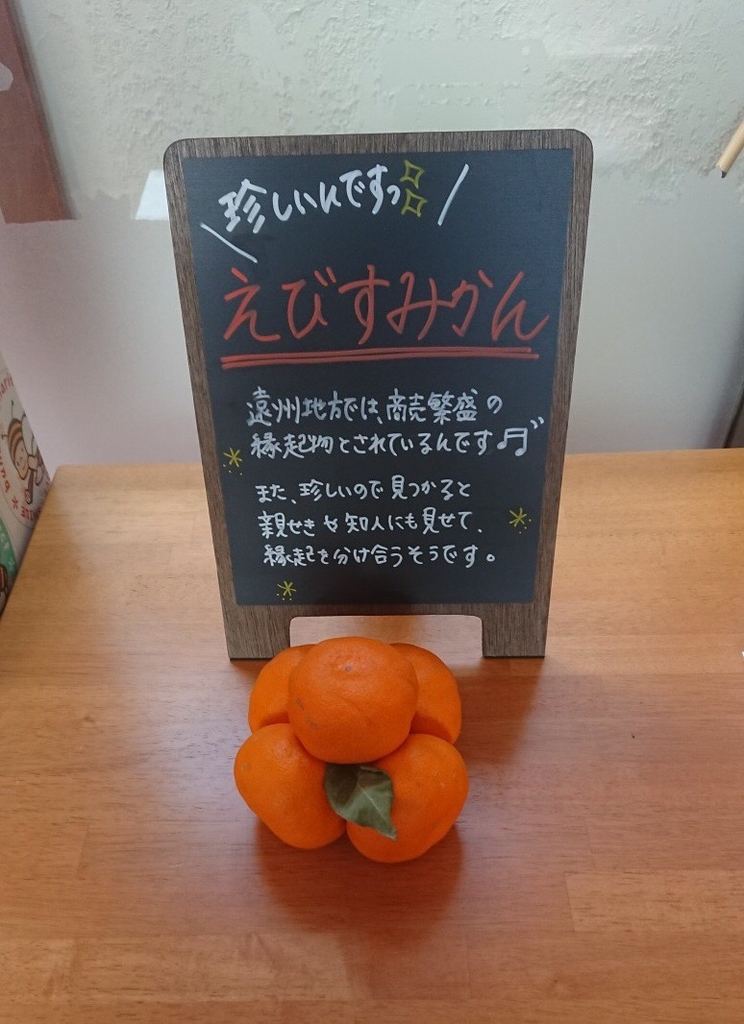 珍しいんですっ
えびすみかん
遠州地方では、商売繁盛の
縁起物とされているんです♬
また、珍しいので見つかると
親せきや知人にも見せて、
縁起を分け合うそうです。